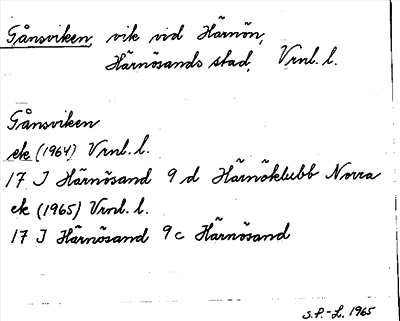 Gånsviken, vik vid Härnön,
Härnösands stad, Vrnl. l.
Gånsviken
ek (1964) Vrnl. l.
17 J Härnösand 9 d Härnöklubb Norra
ek (1965) Vrnl. l.
17 J Härnösand 9c Härnösand
S.P.-L. 1965